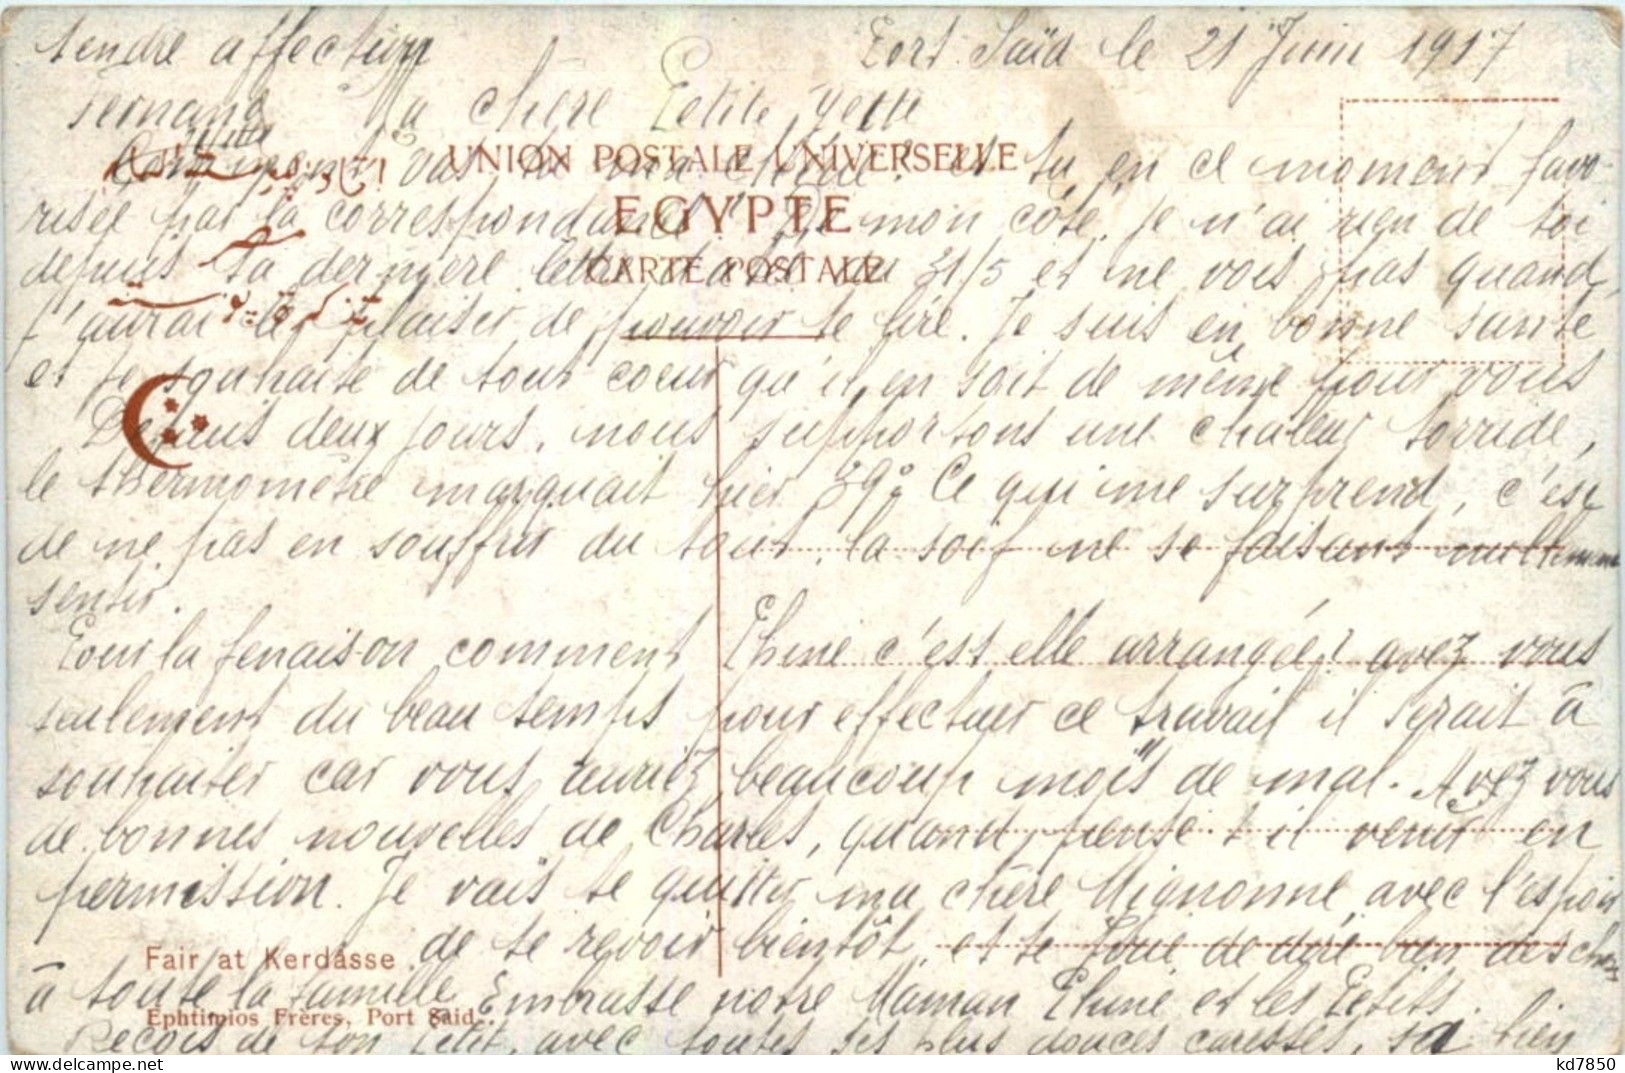 Port Saïd le 21 Juin 1917
Ma chère Petite Yette
UNION POSTALE UNIVERSELLE
EGYPTE
CARTE POSTALE
Comment vas tu ma chérie? et tu en ce moment favo-
risée par la correspondance? De mon côté, je n'ai rien de toi
depuis ta dernière lettre datée du 31/5 et ne vois pas quand
j'aurai le plaisir de pouvoir te lire. Je suis en bonne santé
et je souhaite de tout coeur qu'il en soit de même pour vous
Depuis deux jours, nous supportons une chaleur torride,
le thermomètre marquait hier 39°. Ce qui me surprend, c'est
de ne pas en souffrir du tout, la soif ne se faisant nullement
sentir.
Pour la fenaison comment Phine c'est elle arrangée? avez vous
seulement du beau temps pour effectuer ce travail il serait à
souhaiter car vous auriez beaucoup moïs de mal. Avez vous
de bonnes nouvelles de Charles, quand pense-t-il venir en
permission. Je vais te quitter ma chère Mignonne, avec l'espoir
de te revoir bientôt, et te de dire bien des choses
à toute la famille Embrasse notre Maman Phine et les Petits.
Reçois de ton Petit, avec toutes ses plus douces caresses, sa bien
tendre affection
Fernand
Fair at Kerdâsse
Ephtimios Frères, Port Said.
kd7850